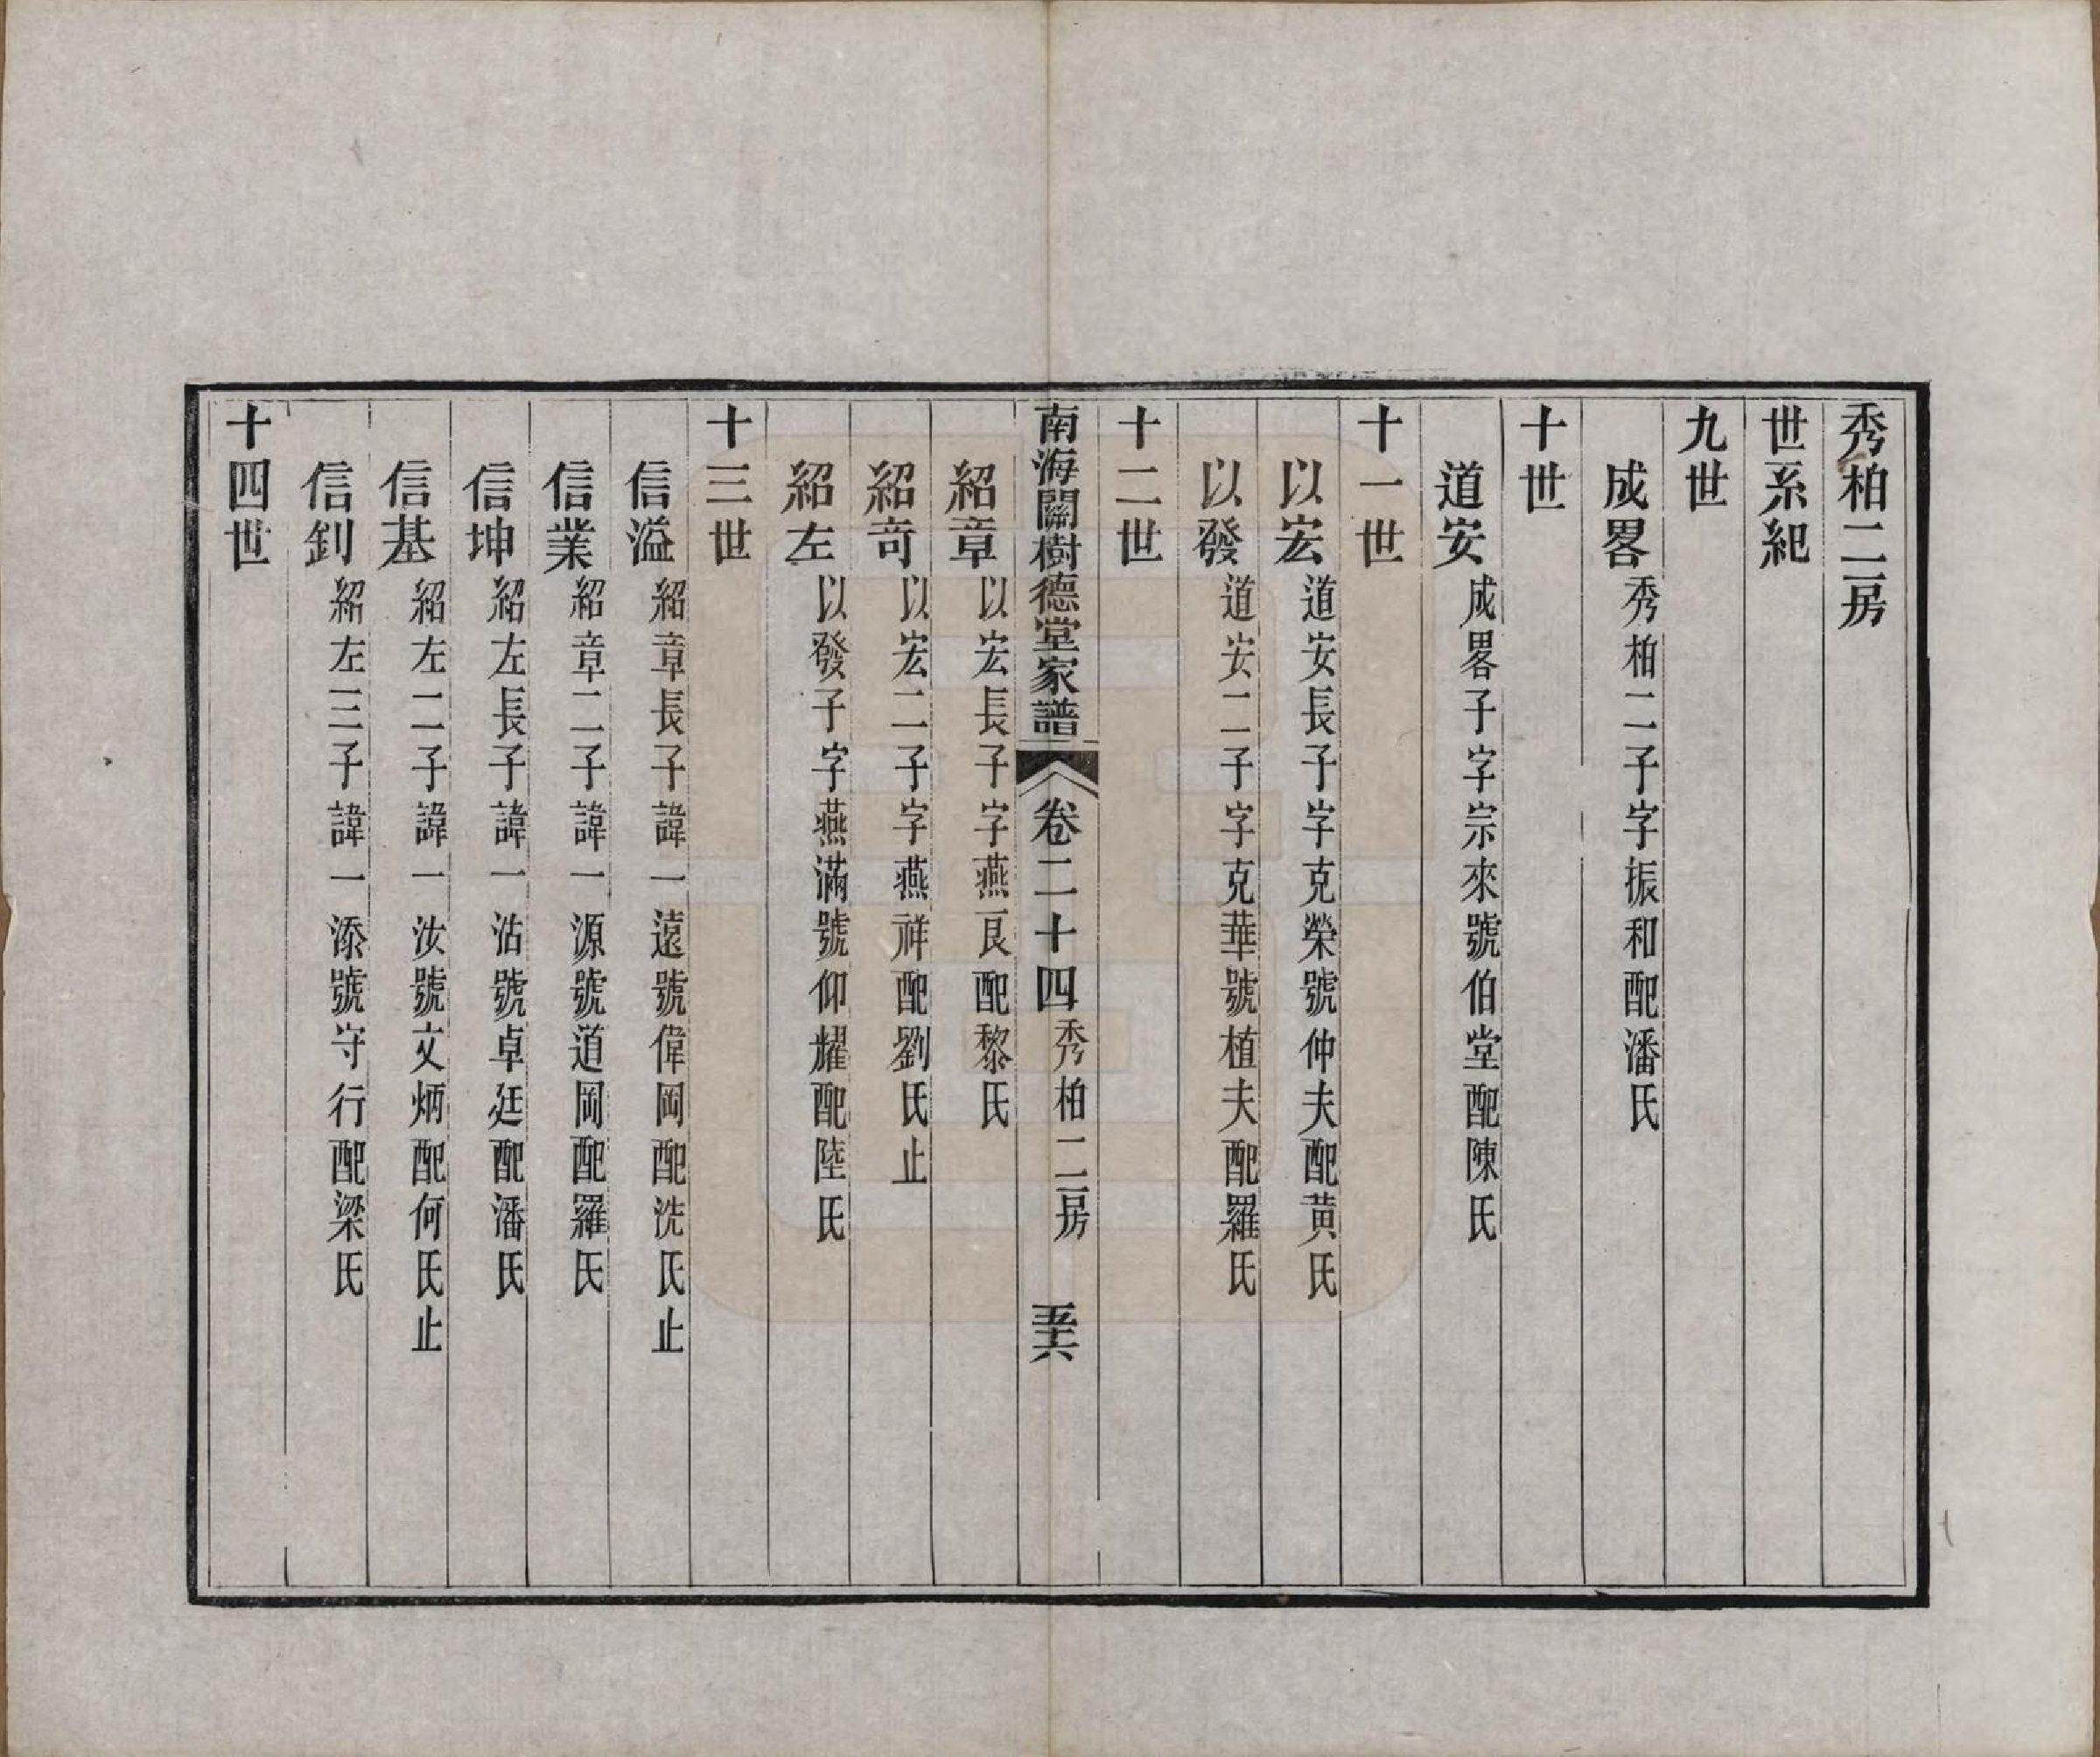 秀柏二房
世系紀
九世
成畧秀柏二子字振和配潘氏
十世
道安成畧子字宗來號伯堂配陳氏
十一世
以宏道安長子字克榮號仲夫配黃氏
以發道安二子字克華號植夫配羅氏
十二世
南海關樹德堂家譜 卷二十四 秀柏二房 五十六
紹章以宏長子字燕良配黎氏
紹奇以宏二子字燕祥配劉氏止
紹左以發子字燕滿號仰耀配陸氏
十三世
信溢紹章長子諱一遠號偉岡配冼氏止
信業紹章二子諱一源號道岡配羅氏
信坤紹左長子諱一沾號卓廷配潘氏
信基紹左二子諱一汝號文炳配何氏止
信釗紹左三子諱一添號守行配梁氏
十四世